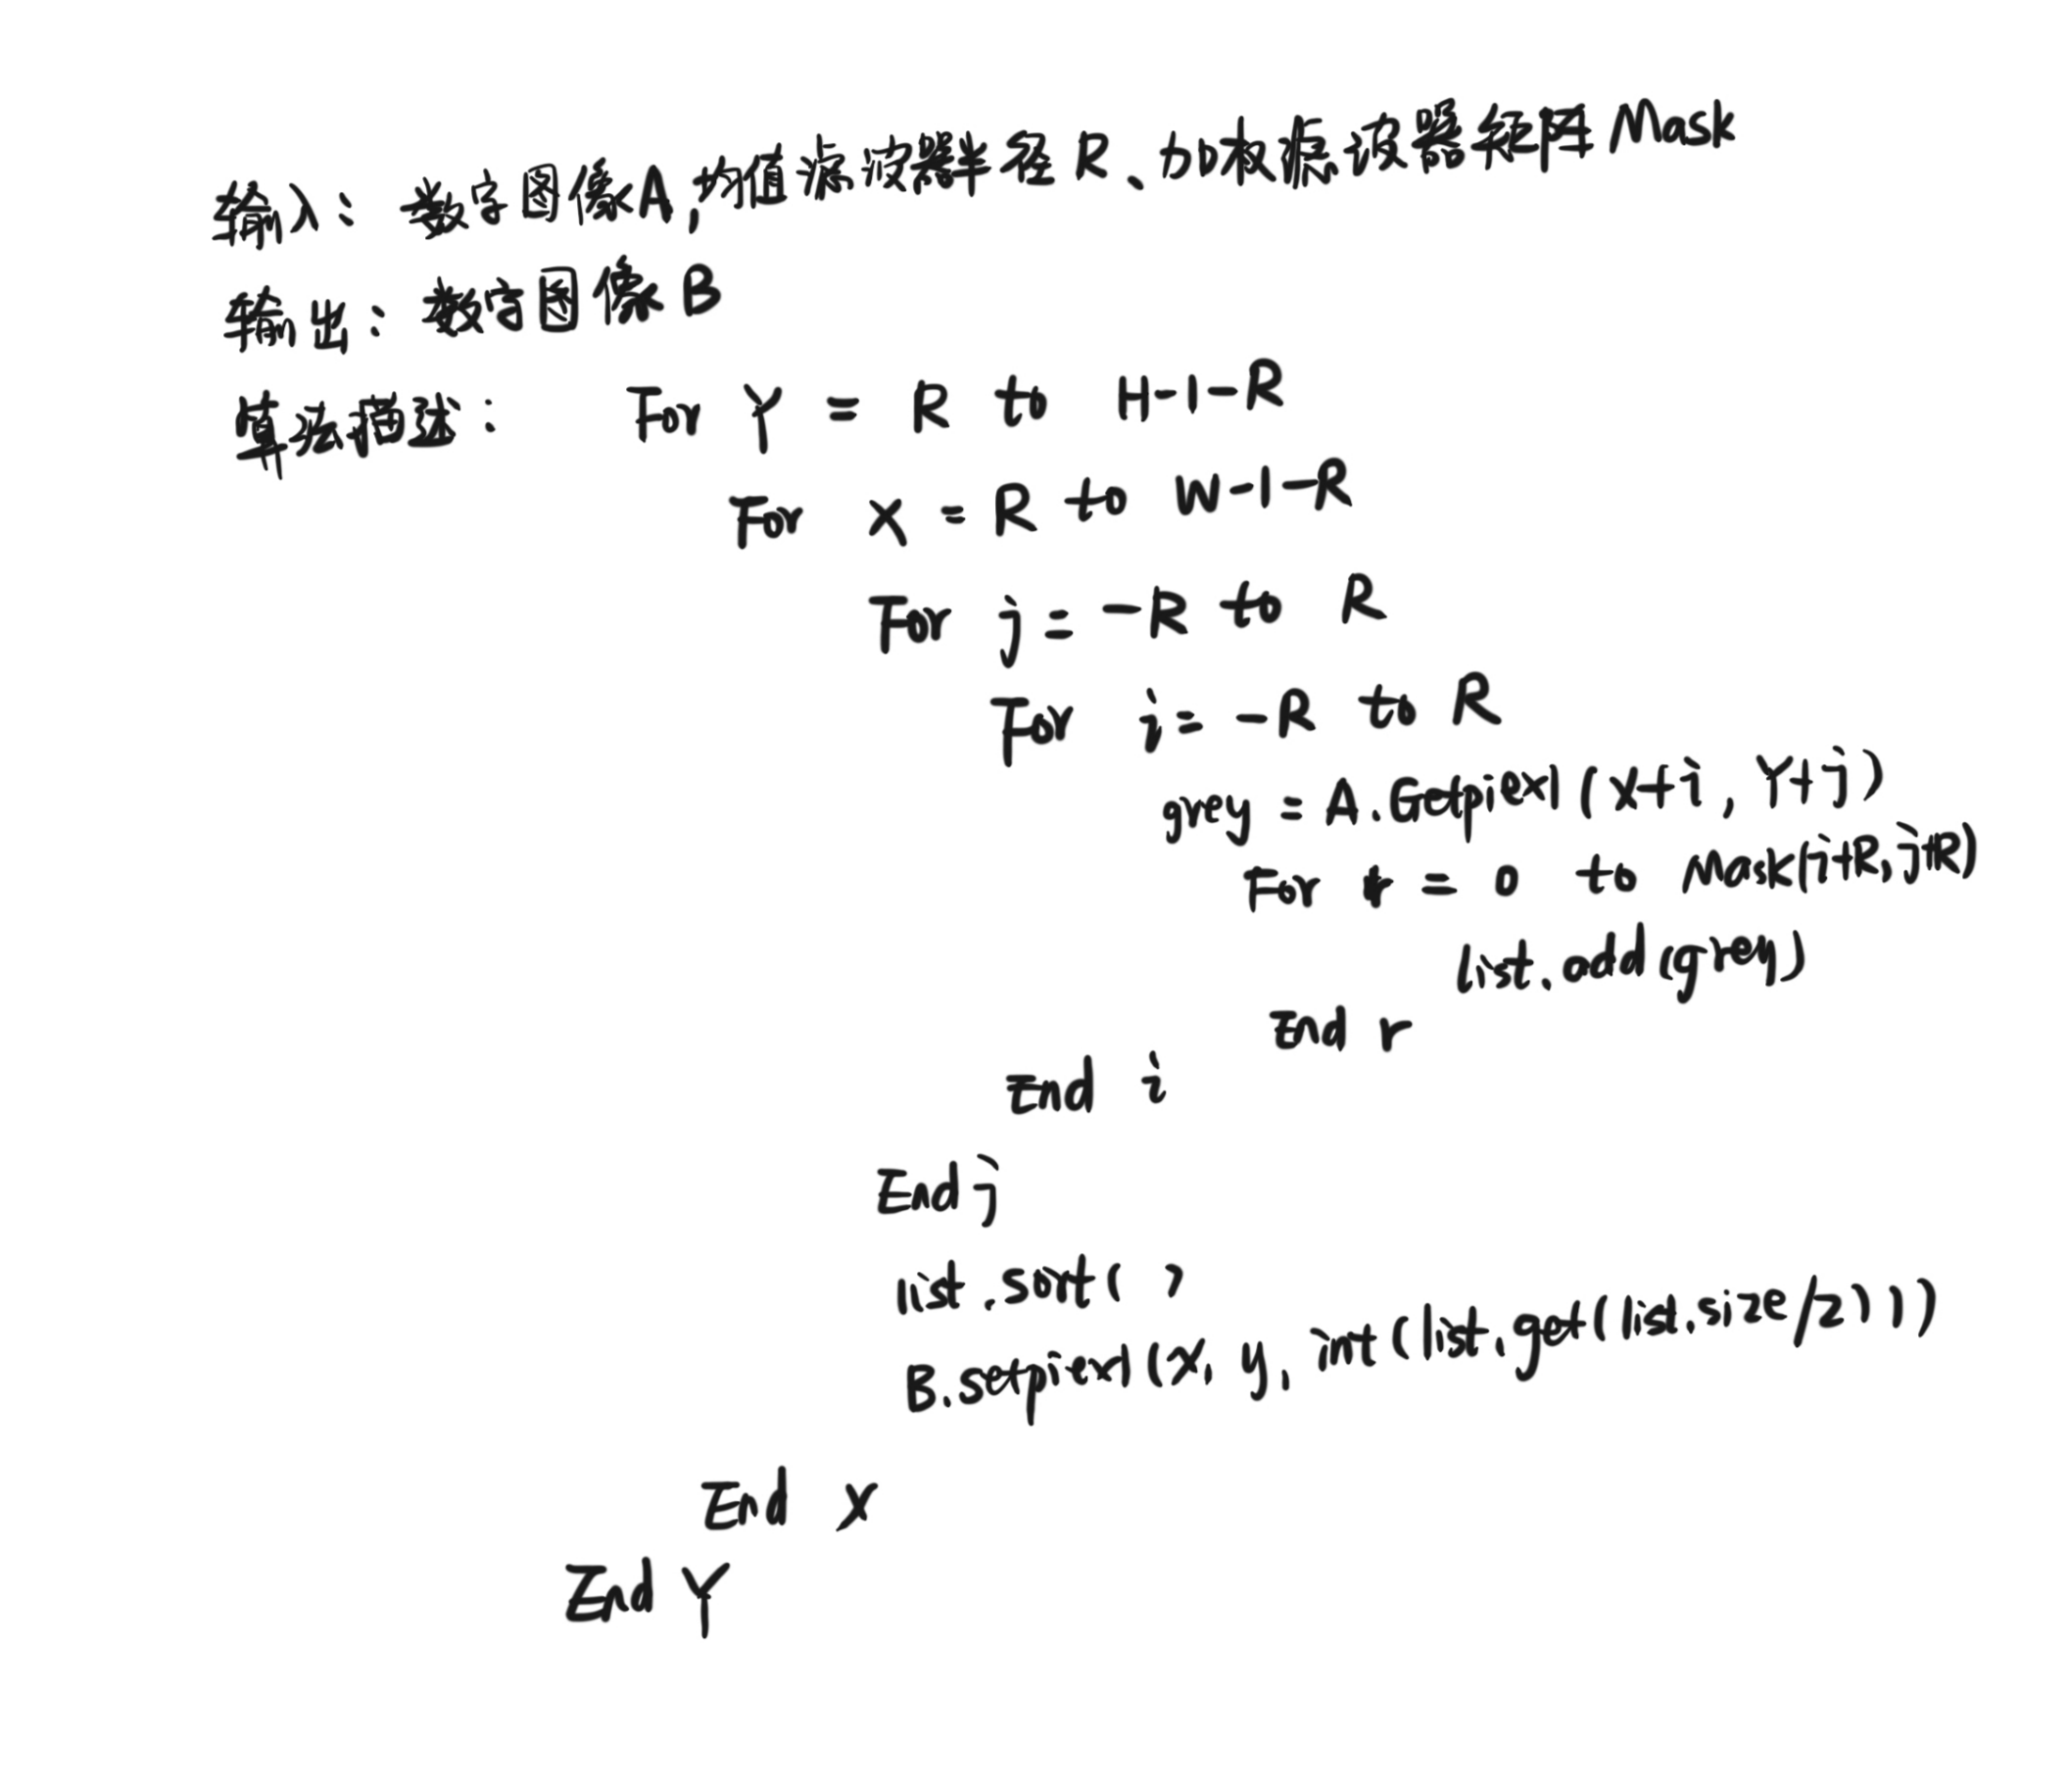 输入：数字图像A，均值滤波器半径R、加权滤波器矩阵Mask
输出：数字图像B
算法描述：For Y = R to H-1-R
For x = R to W-1-R
For j = -R to R
For i = -R to R
grey = A.Getpiexl(x+i, Y+j)
For r = 0 to Mask(i+R, j+R)
list.add(grey)
End r
End i
End j
list.sort( )
B.setpiexl(x, y, int(list.get(list.size/2))))
End x
End Y